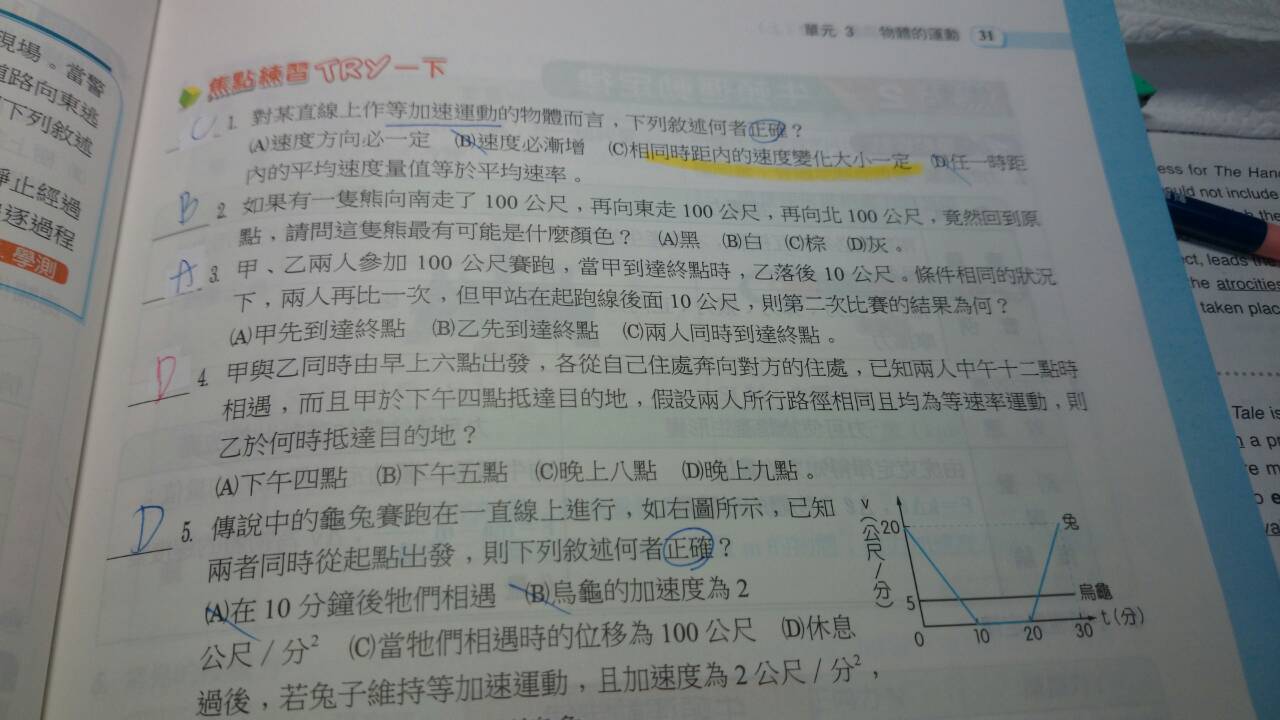 單元 3 物體的運動 31
現場。當警
道路向東逃
下列敘述
靜止經過
追逐過程
學測
焦點練習 TRY一下
C 1. 對某直線上作等加速運動的物體而言，下列敘述何者正確？
(A)速度方向必一定 (B)速度必漸增 (C)相同時距內的速度變化大小一定 (D)任一時距
內的平均速度量值等於平均速率。
B 2. 如果有一隻熊向南走了 100 公尺，再向東走 100 公尺，再向北 100 公尺，竟然回到原
點，請問這隻熊最有可能是什麼顏色？ (A)黑 (B)白 (C)棕 (D)灰。
A 3. 甲、乙兩人參加 100 公尺賽跑，當甲到達終點時，乙落後 10 公尺。條件相同的狀況
下，兩人再比一次，但甲站在起跑線後面 10 公尺，則第二次比賽的結果為何？
(A)甲先到達終點 (B)乙先到達終點 (C)兩人同時到達終點。
D 4. 甲與乙同時由早上六點出發，各從自己住處奔向對方的住處，已知兩人中午十二點時
相遇，而且甲於下午四點抵達目的地，假設兩人所行路徑相同且均為等速率運動，則
乙於何時抵達目的地？
(A)下午四點 (B)下午五點 (C)晚上八點 (D)晚上九點。
D 5. 傳說中的龜兔賽跑在一直線上進行，如右圖所示，已知
兩者同時從起點出發，則下列敘述何者正確？
(A)在 10 分鐘後牠們相遇 (B)烏龜的加速度為 2
公尺／分² (C)當牠們相遇時的位移為 100 公尺 (D)休息
過後，若兔子維持等加速運動，且加速度為 2 公尺／分²，
v(公尺／分)
20
兔
5
烏龜
0 10 20 30 t(分)
ess for The Hand
ould not include
ct, leads the
the atrocities
taken plac
Tale is
n a pr